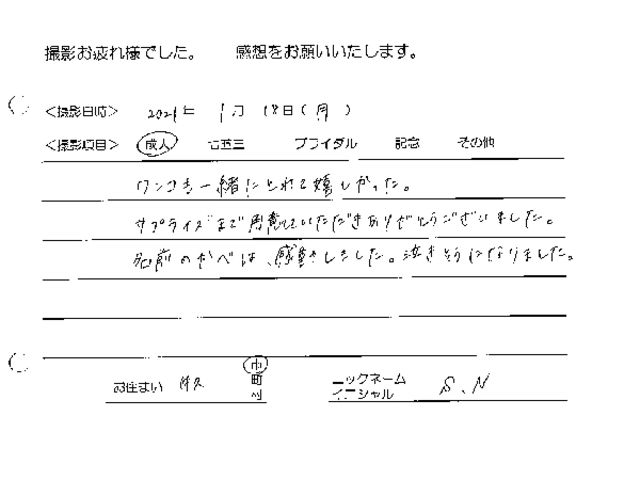 撮影お疲れ様でした。 感想をお願いいたします。
<撮影日時> 2021年 1月 18日(月)
<撮影項目> 成人 七五三 ブライダル 記念 その他
ワンコも一緒にとれて嬉しかった。
サプライズまで用意していただきありがとうございました。
名前のかべは、感動しました。泣きそうになりました。
お住まい 市町村
ニックネーム イニシャル S.N